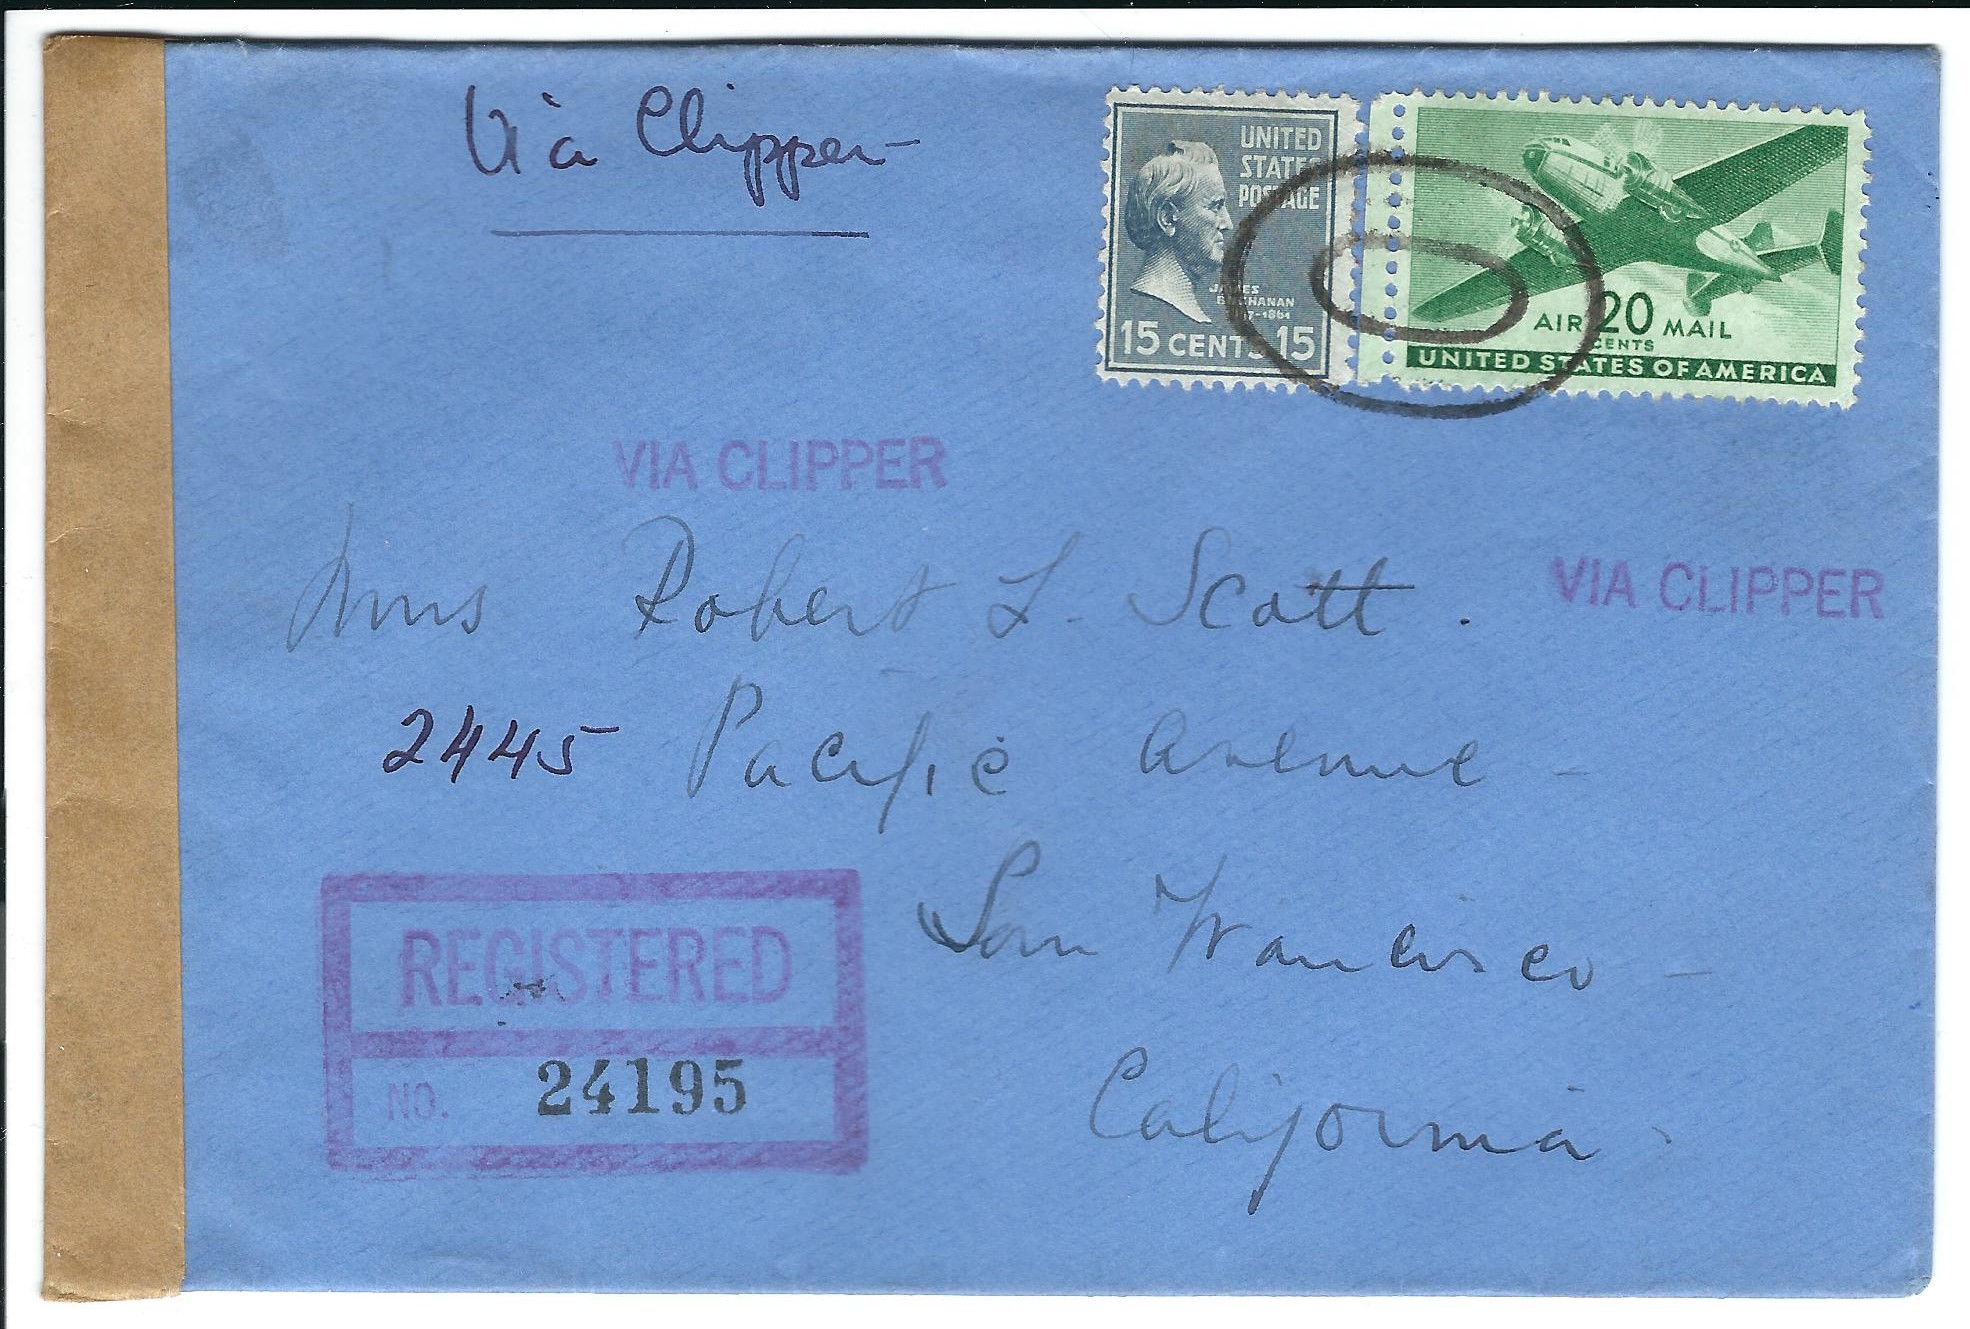 Via Clipper-
UNITED
STATES
POSTAGE
JAMES
BUCHANAN
7-1861
15 CENTS 15
AIR 20 MAIL
CENTS
UNITED STATES OF AMERICA
VIA CLIPPER
VIA CLIPPER
Mrs Robert L. Scott.
2445 Pacific Avenue -
San Francisco -
California -
REGISTERED
NO. 24195